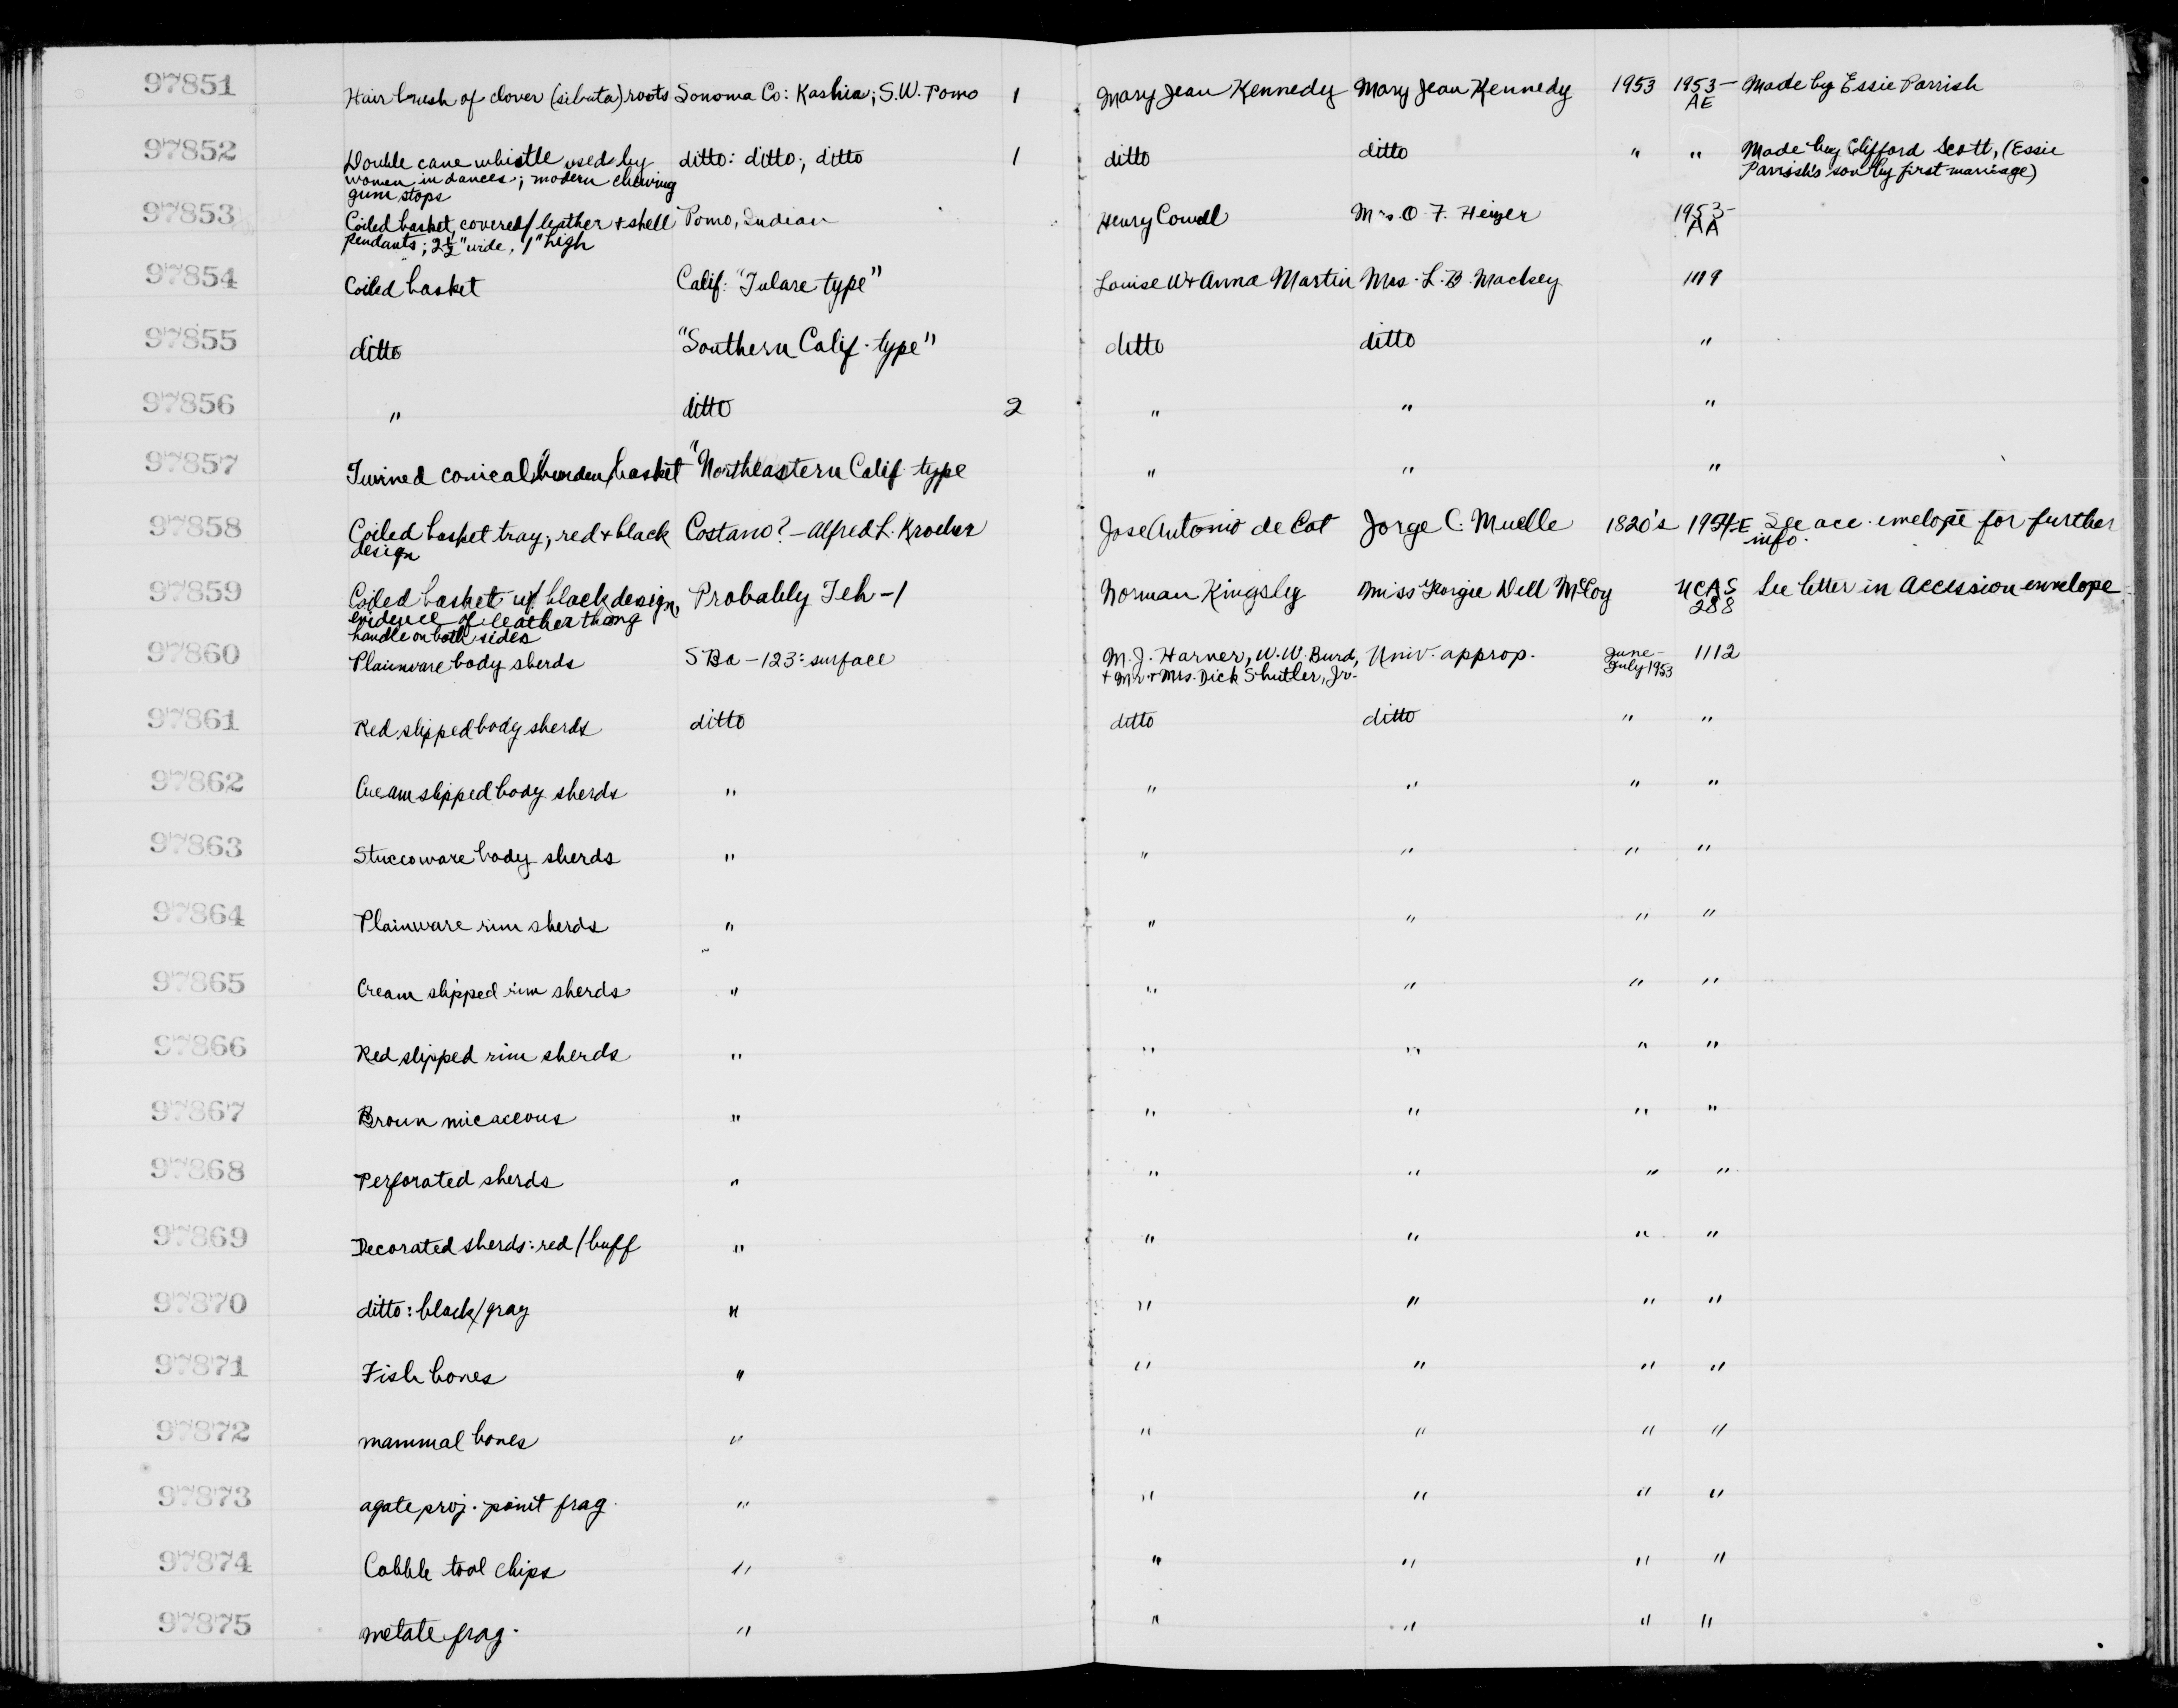 97851 Hair brush of clover (sibuta) roots Sonoma Co: Kashia; S.W. Pomo 1 Mary Jean Kennedy Mary Jean Kennedy 1953 1953- Made by Essie Parrish
AE
97852 Double cane whistle used by ditto: ditto; ditto 1 ditto ditto " " Made by Clifford Scott, (Essie
women in dances; modern chewing Parrish's son by first marriage)
gum stops
97853 Coiled basket, covered/ leather + shell Pomo, Indian Henry Cowell Mrs. O. F. Heizer 1953-
pendants; 2½" wide, 1" high AA
97854 Coiled basket Calif: "Tulare type" Louise W + Anna Martin Mrs. L. B. Mackey 1119
97855 ditto "Southern Calif. type" ditto ditto "
97856 " ditto 2 " " "
97857 Twined conical "burden" basket "Northeastern Calif type " " "
97858 Coiled basket tray; red + black Costano? - Alfred L. Kroeber Jose Antonio de Cot Jorge C. Muelle 1820's 1954-E See acc. envelope for further
design info.
97859 Coiled basket w/ black design, Probably Teh-1 Norman Kingsley Miss Georgie Dell McCoy UCAS See letter in Accession envelope
evidence of leather thong 288
handle on both sides
97860 Plainware body sherds SBa-123: surface M. J. Harner, W. W. Burd, Univ. approp. June- 1112
+ Mr. + Mrs. Dick Shutler, Jr. July 1953
97861 Red slipped body sherds ditto ditto ditto " "
97862 Cream slipped body sherds " " " " "
97863 Stuccoware body sherds " " " " "
97864 Plainware rim sherds " " " " "
97865 Cream slipped rim sherds " " " " "
97866 Red slipped rim sherds " " " " "
97867 Brown micaceous " " " " "
97868 Perforated sherds " " " " "
97869 Decorated sherds: red/buff " " " " "
97870 ditto: black/gray " " " " "
97871 Fish bones " " " " "
97872 mammal bones " " " " "
97873 agate proj. point frag. " " " " "
97874 Cobble tool chips " " " " "
97875 metate frag. " " " " "